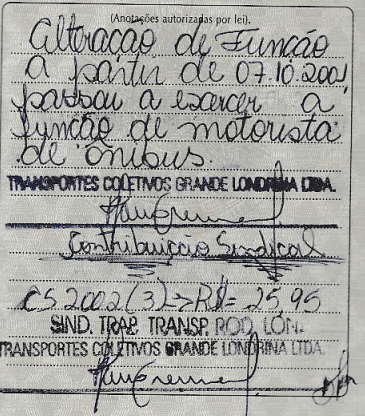 (Anotações autorizadas por lei).
Alteração de Função
a partir de 07.10.2001
passou a exercer a
função de motorista
de ônibus.
TRANSPORTES COLETIVOS GRANDE LONDRINA LTDA.
Contribuição Sindical
CS 2002 (3) => R$= 25,95
SIND. TRAB. TRANSP. ROD. LON.
TRANSPORTES COLETIVOS GRANDE LONDRINA LTDA.